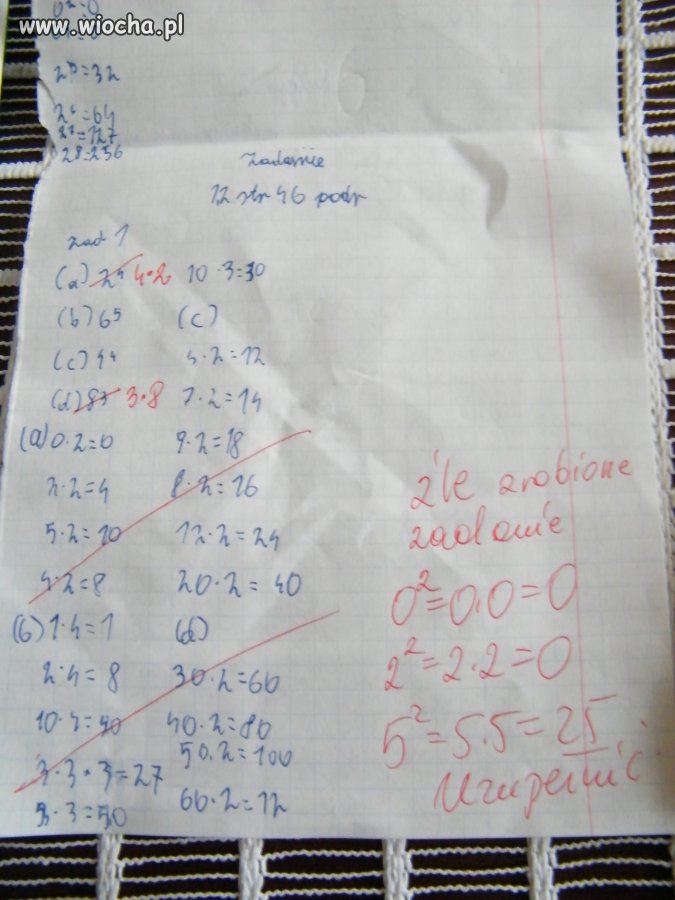 www.wiocha.pl
0²=0
2⁵=32
2⁶=64
2⁷=127
28=256
Zadanie
12 str 46 podr
zad 1
(a) 2⁴ 4·2 10·3=30
(b) 6⁵ (c)
(c) 4⁴ 7·2=14
(d) 83 3·8
(a) 0·2=0 9·2=18
2·2=4 8·2=16
5·2=10 12·2=24
4·2=8 20·2=40
(b) 1·4=1 (d)
2·4=8 30·2=60
40·2=80
50·2=100
3·3·3=27 60·2=12
źle zrobione
zadanie
0²=0·0=0
2²=2·2=0
5²=5·5=25
Uzupełnić